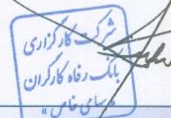 شرکت کارگزاری
بانک رفاه کارگران
«سهامی خاص»